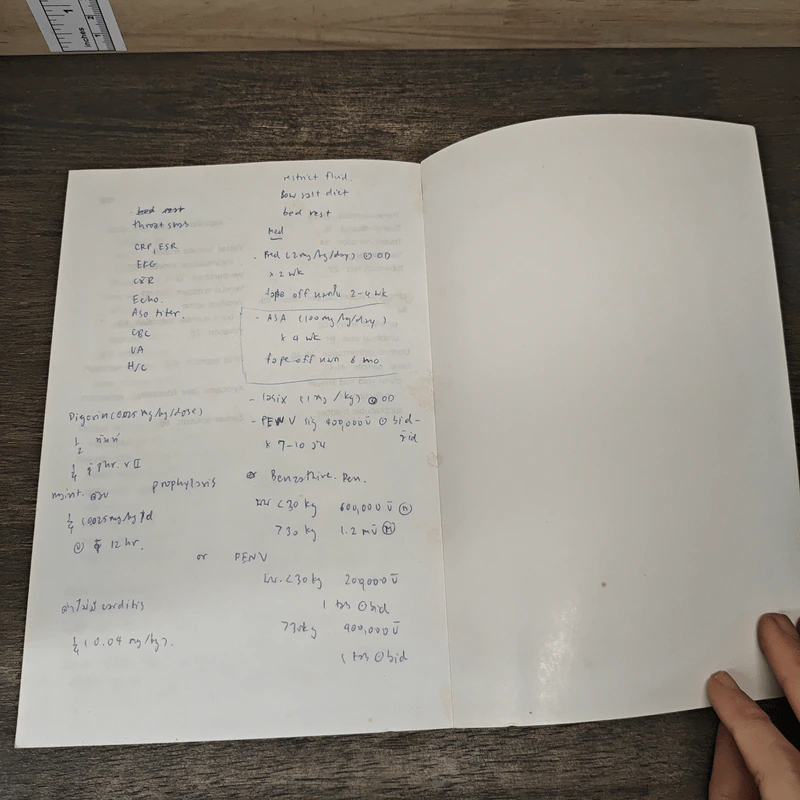 bed rest
throat swab
CRP, ESR
EKG
CXR
Echo.
Aso titer.
CBC
UA
H/C
Digoxin (0.025 mg/kg/dose)
1/2 ทันที
1/4 q 8 hr. x II
maint. ด้วย
1/4 (0.025 mg/kg)/d
q 12 hr.
ถ้าไม่มี carditis
1/4 (0.04 mg/kg).
restrict fluid.
low salt diet
bed rest
Med
- Pred (2 mg/kg/day) OD
x 2 wk
tape off นาน 2-4 wk
- ASA (100 mg/kg/day)
x 4 wk
tape off นาน 6 mo
- lasix (1 mg/kg) OD
- PEN V sig 400,000 U bid-tid
x 7-10 วัน
prophylaxis or Benzathine. Pen.
นน <30 kg 600,000 U (m)
>30 kg 1.2 mU (m)
or PEN V
นน. <30 kg 200,000 U
1 tab bid
>30 kg 400,000 U
1 tab bid